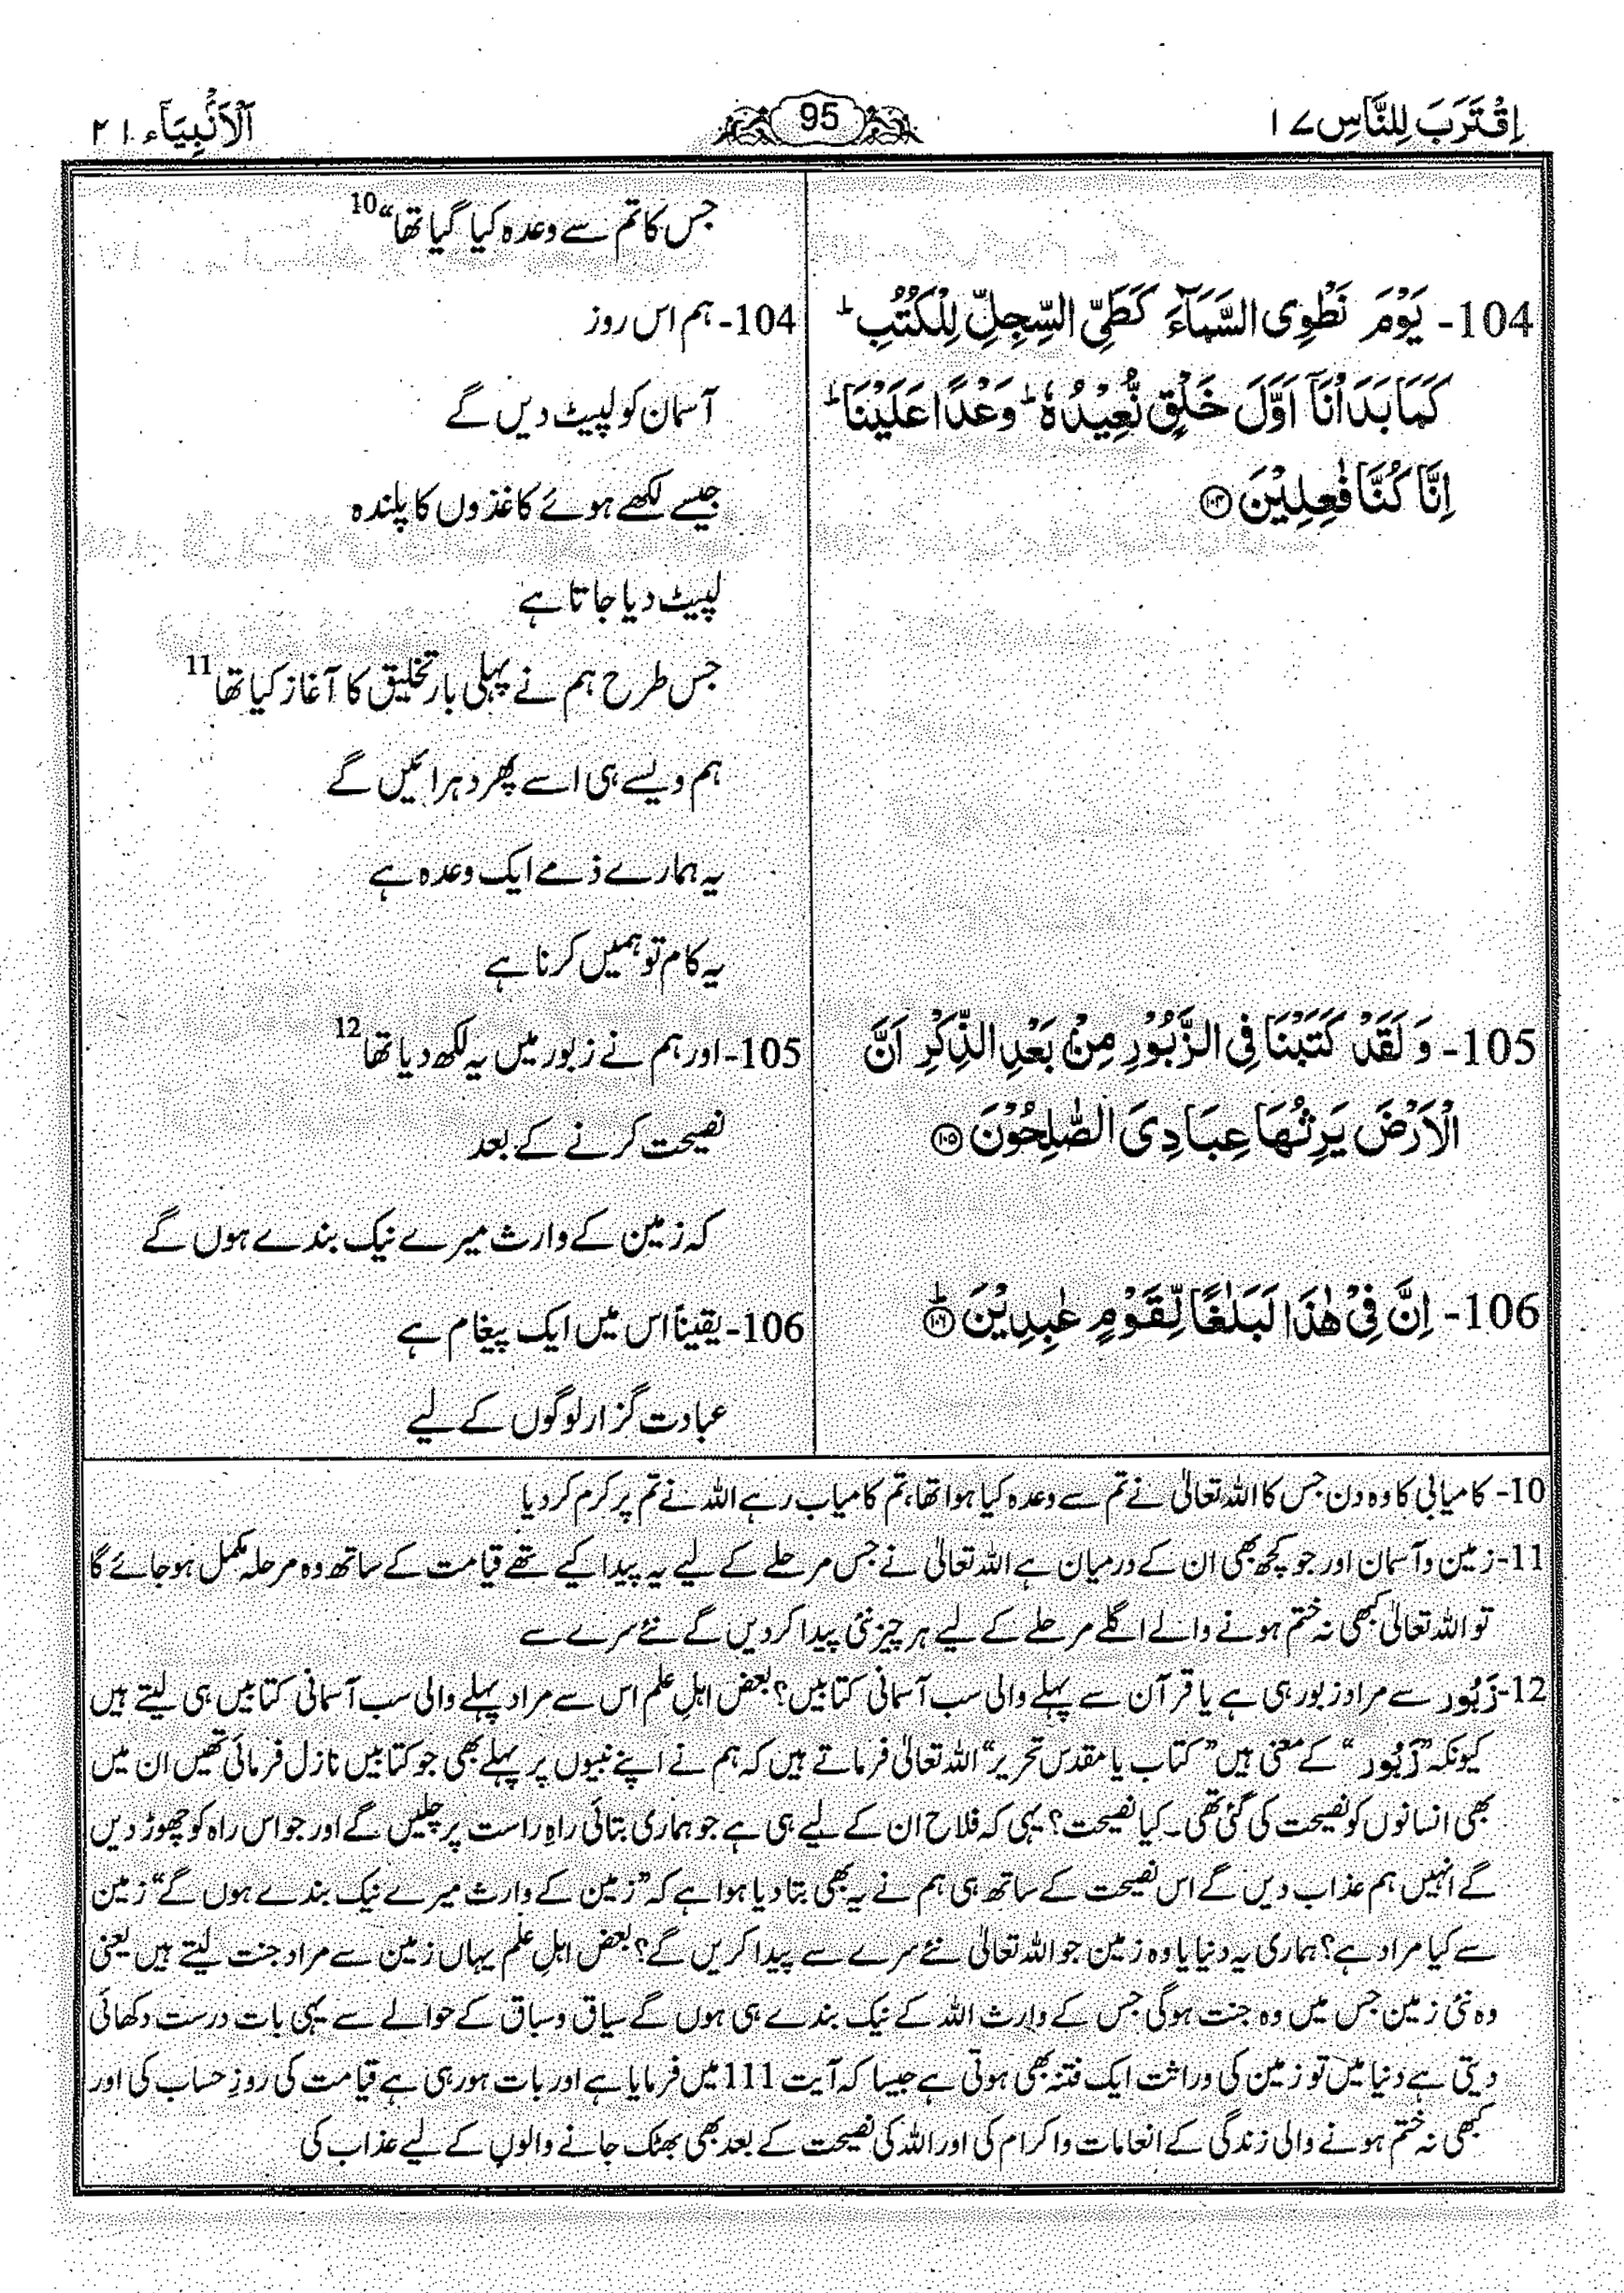 اِقْتَرَبَ لِلنَّاسِ ۱۷
95
اَلْاَنْۢبِيَآء ۲۱
جس کا تم سے وعدہ کیا گیا تھا“ 10
104- يَوْمَ نَطْوِى السَّمَآءَ كَطَىِّ السِّجِلِّ لِلْكُتُبِ ؕ
كَمَا بَدَاْنَاۤ اَوَّلَ خَلْقٍ نُّعِيْدُهٗ ؕ وَعْدًا عَلَيْنَا ؕ
اِنَّا كُنَّا فٰعِلِيْنَ ۝۱۰۴
104- ہم اس روز
آسمان کو لپیٹ دیں گے
جیسے لکھے ہوئے کاغذوں کا پلندہ
لپیٹ دیا جاتا ہے
جس طرح ہم نے پہلی بار تخلیق کا آغاز کیا تھا 11
ہم ویسے ہی اسے پھر دہرائیں گے
یہ ہمارے ذمے ایک وعدہ ہے
یہ کام تو ہمیں کرنا ہے
105- وَ لَقَدْ كَتَبْنَا فِى الزَّبُوْرِ مِنْۢ بَعْدِ الذِّكْرِ اَنَّ
الْاَرْضَ يَرِثُهَا عِبَادِىَ الصّٰلِحُوْنَ ۝۱۰۵
105- اور ہم نے زبور میں یہ لکھ دیا تھا 12
نصیحت کرنے کے بعد
کہ زمین کے وارث میرے نیک بندے ہوں گے
106- اِنَّ فِىْ هٰذَا لَبَلٰغًا لِّقَوْمٍ عٰبِدِيْنَ ؕ۝۱۰۶
106- یقیناً اس میں ایک پیغام ہے
عبادت گزار لوگوں کے لیے
10- کامیابی کا وہ دن جس کا اللہ تعالیٰ نے تم سے وعدہ کیا ہوا تھا، تم کامیاب رہے اللہ نے تم پر کرم کر دیا
11- زمین و آسمان اور جو کچھ بھی ان کے درمیان ہے اللہ تعالیٰ نے جس مرحلے کے لیے یہ پیدا کیے تھے قیامت کے ساتھ وہ مرحلہ مکمل ہو جائے گا
تو اللہ تعالیٰ کبھی نہ ختم ہونے والے اگلے مرحلے کے لیے ہر چیز نئی پیدا کر دیں گے نئے سرے سے
12- زَبُور سے مراد زبور ہی ہے یا قرآن سے پہلے والی سب آسمانی کتابیں؟ بعض اہلِ علم اس سے مراد پہلے والی سب آسمانی کتابیں ہی لیتے ہیں
کیونکہ ”زَبُور“ کے معنی ہیں ”کتاب یا مقدس تحریر“ اللہ تعالیٰ فرماتے ہیں کہ ہم نے اپنے نبیوں پر پہلے بھی جو کتابیں نازل فرمائی تھیں ان میں
بھی انسانوں کو نصیحت کی گئی تھی۔ کیا نصیحت؟ یہی کہ فلاح ان کے لیے ہی ہے جو ہماری بتائی راہِ راست پر چلیں گے اور جو اس راہ کو چھوڑ دیں
گے انہیں ہم عذاب دیں گے اس نصیحت کے ساتھ ہی ہم نے یہ بھی بتا دیا ہوا ہے کہ ”زمین کے وارث میرے نیک بندے ہوں گے“ زمین
سے کیا مراد ہے؟ ہماری یہ دنیا یا وہ زمین جو اللہ تعالیٰ نئے سرے سے پیدا کریں گے؟ بعض اہلِ علم یہاں زمین سے مراد جنت لیتے ہیں یعنی
وہ نئی زمین جس میں وہ جنت ہو گی جس کے وارث اللہ کے نیک بندے ہی ہوں گے سیاق و سباق کے حوالے سے یہی بات درست دکھائی
دیتی ہے دنیا میں تو زمین کی وراثت ایک فتنہ بھی ہوتی ہے جیسا کہ آیت 111 میں فرمایا ہے اور بات ہو رہی ہے قیامت کی روزِ حساب کی اور
کبھی نہ ختم ہونے والی زندگی کے انعامات و اکرام کی اور اللہ کی نصیحت کے بعد بھی بھٹک جانے والوں کے لیے عذاب کی